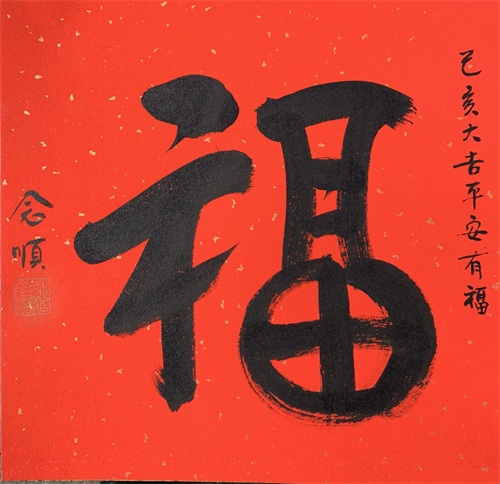 己亥大吉平安有福
福
念順